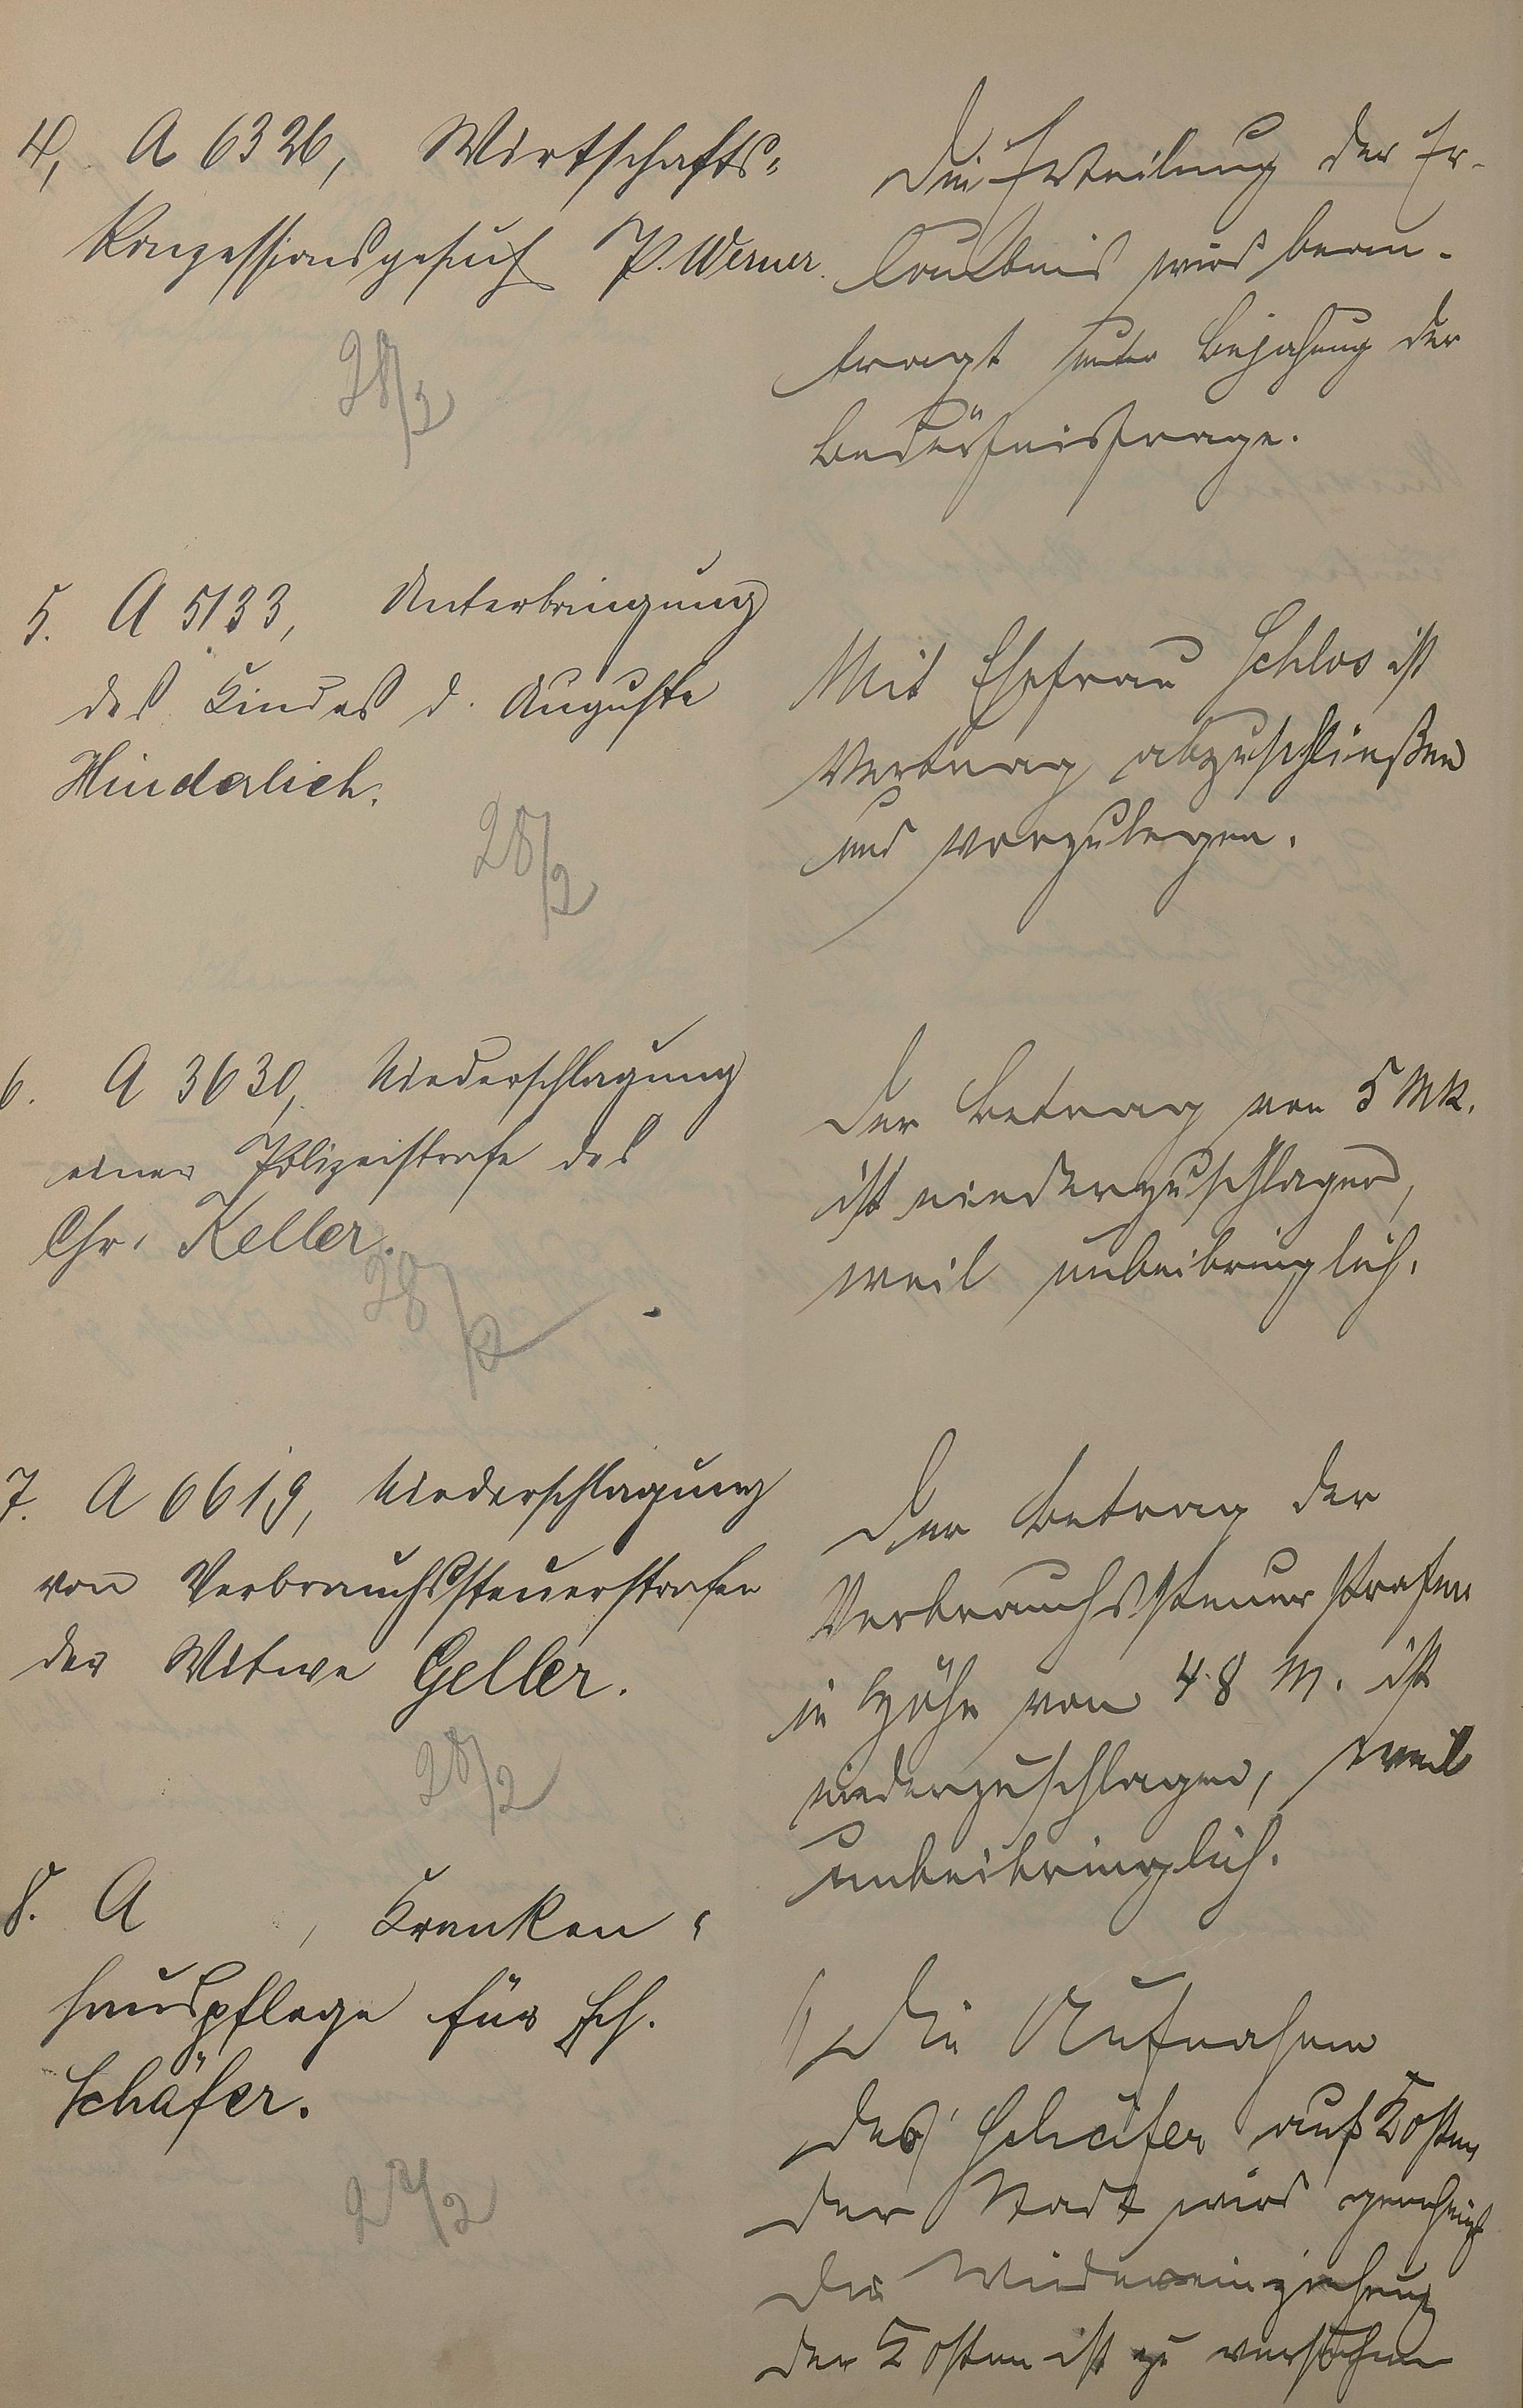 4, A 6326, Wirtschafts-
Konzessionsgesuch P. Werner.
28/2
Die Erteilung der Er-
laubnis wird bean-
tragt unter Bejahung der
Bedürfnisfrage.
5. A 5133, Unterbringung
des Kindes d. Auguste
Hinderlich.
28/2
Mit Ehefrau Schlos ist
Vertrag abzuschließen
und vorzulegen.
6. A 3630, Niederschlagung
einer Polizeistrafe des
Chr. Keller.
28/2
Der Betrag von 5 Mk.
ist niederzuschlagen,
weil unbeibringlich.
7. A 6619, Niederschlagung
von Verbrauchssteuerstrafen
der Witwe Geller.
28/2
Der Betrag der
Verbrauchssteuerstrafen
in Höhe von 48 M. ist
niederzuschlagen, weil
unbeibringlich.
8. A , Kranken-
hauspflege für
Schäfer.
28/2
1) Die Aufnahme
des Schäfer auf Kosten
der Stadt wird genehmigt
Die Wiedereinziehung
der Kosten ist zu versuchen